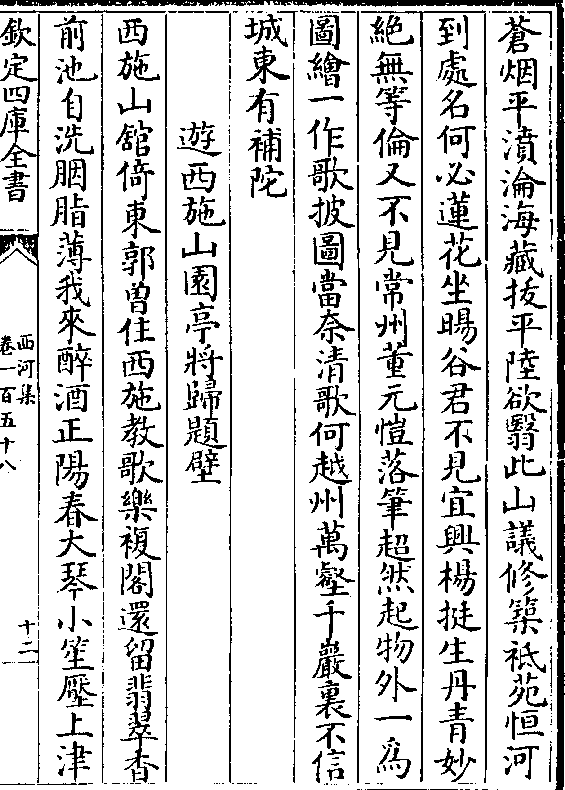 蒼烟平濆淪海藏拔平陸欲翳此山議修築祗苑恒河
到處名何必蓮花坐暘谷君不見宜興楊挺生丹青妙
絕無等倫又不見常州董元愷落筆超然起物外一為
圖繪一作歌披圖當奈清歌何越州萬壑千巖裏不信
城東有補陀
遊西施山園亭將歸題壁
西施山舘倚東郭曾住西施教歌樂複閣還留翡翠香
前池自洗胭脂薄我來醉酒正陽春大琴小笙壓上津
欽定四庫全書
西河集
卷一百五十八
十二